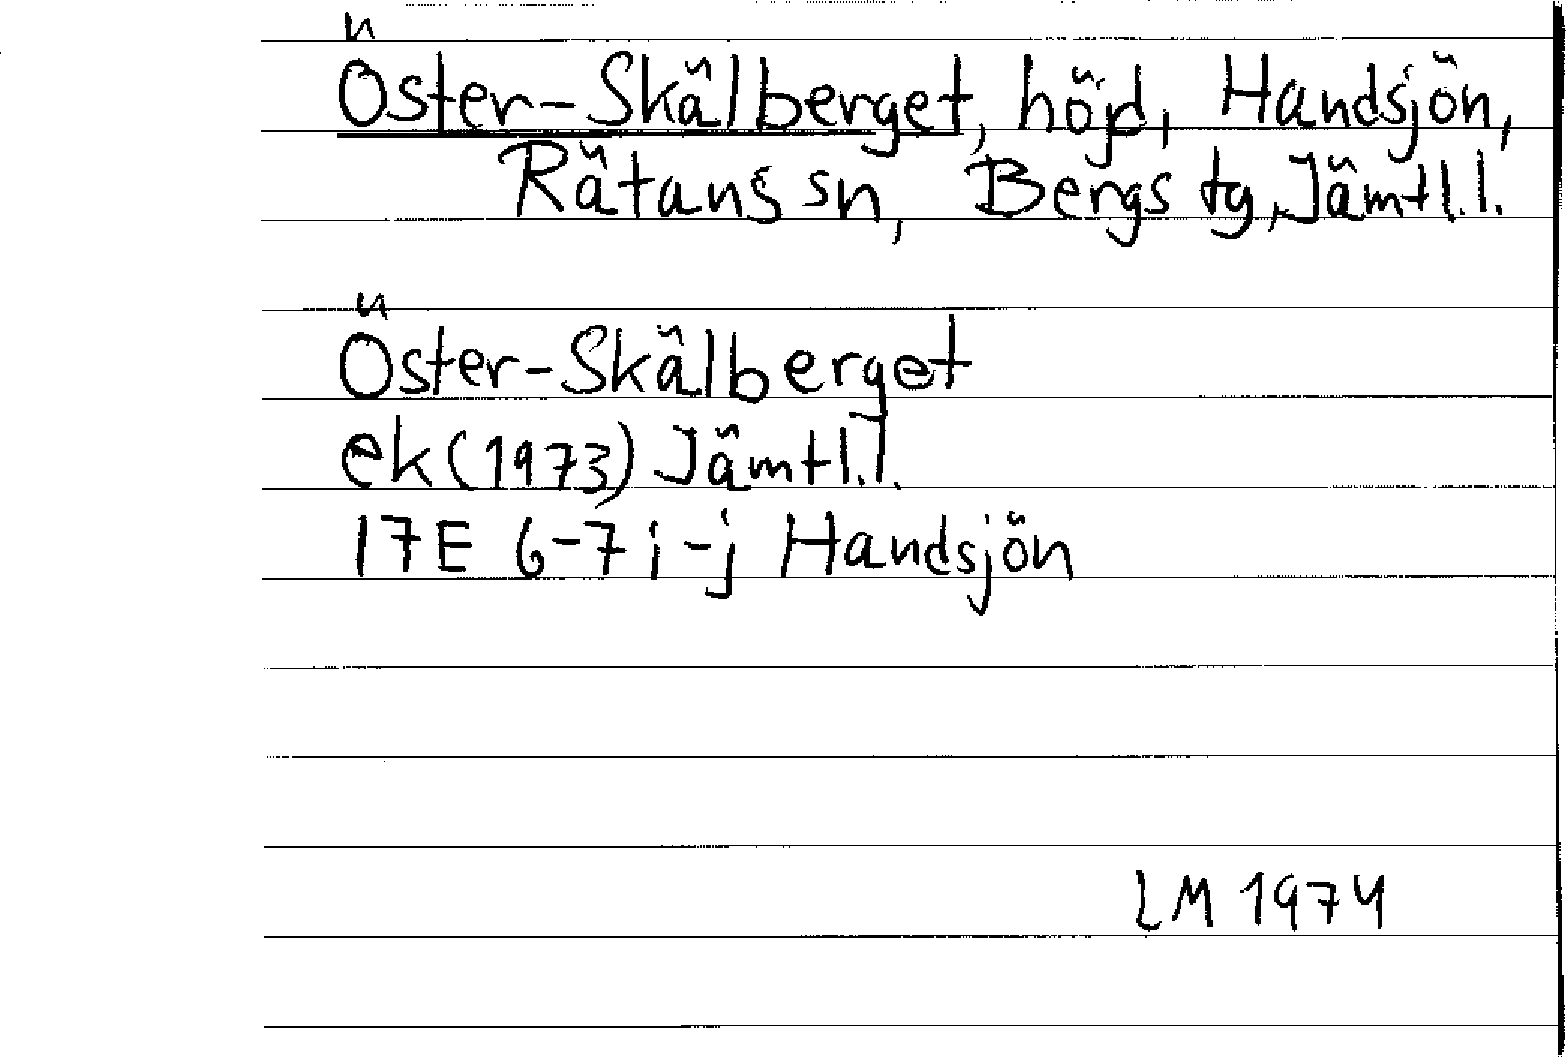 Öster-Skälberget, höjd, Handsjön,
Rätans sn, Bergs tg, Jämtl.l.
Öster-Skälberget
ek (1973) Jämtl.l.
17E 6-7 i-j Handsjön
LM 1974